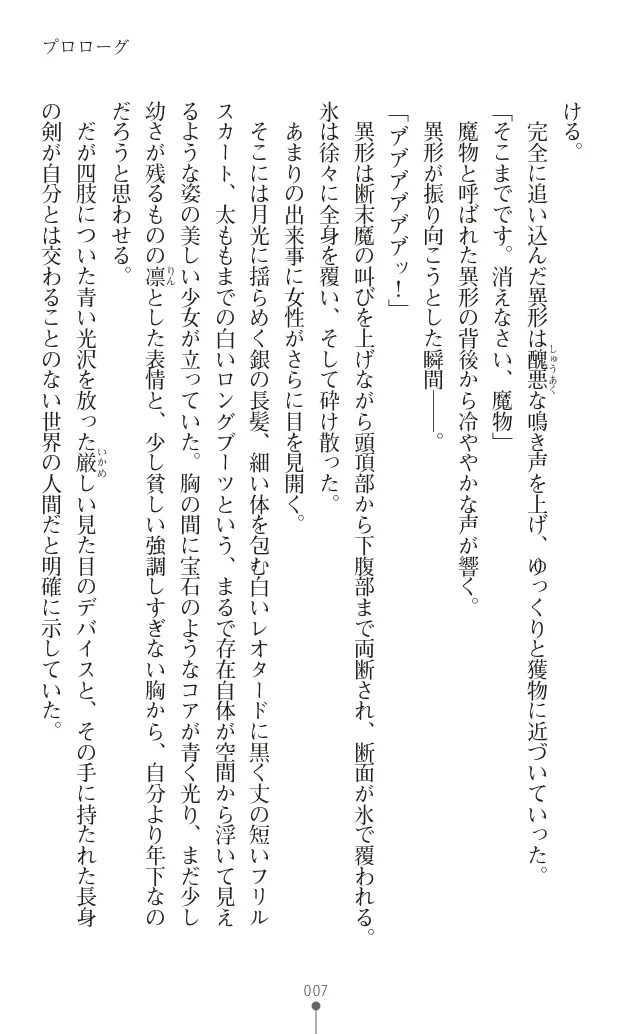 プロローグ
ける。
完全に追い込んだ異形は醜悪な鳴き声を上げ、ゆっくりと獲物に近づいていった。
「そこまでです。消えなさい、魔物」
魔物と呼ばれた異形の背後から冷ややかな声が響く。
異形が振り向こうとした瞬間――。
「ア゙ア゙ア゙ア゙ア゙ア゙ッ！」
異形は断末魔の叫びを上げながら頭頂部から下腹部まで両断され、断面が氷で覆われる。
氷は徐々に全身を覆い、そして砕け散った。
あまりの出来事に女性がさらに目を見開く。
そこには月光に揺らめく銀の長髪、細い体を包む白いレオタードに黒く丈の短いフリル
スカート、太ももまでの白いロングブーツという、まるで存在自体が空間から浮いて見え
るような姿の美しい少女が立っていた。胸の間に宝石のようなコアが青く光り、まだ少し
幼さが残るものの凛とした表情と、少し貧しい強調しすぎない胸から、自分より年下なの
だろうと思わせる。
だが四肢についた青い光沢を放った厳しい見た目のデバイスと、その手に持たれた長身
の剣が自分とは交わることのない世界の人間だと明確に示していた。
しゅうあく
りん
いかめ
007